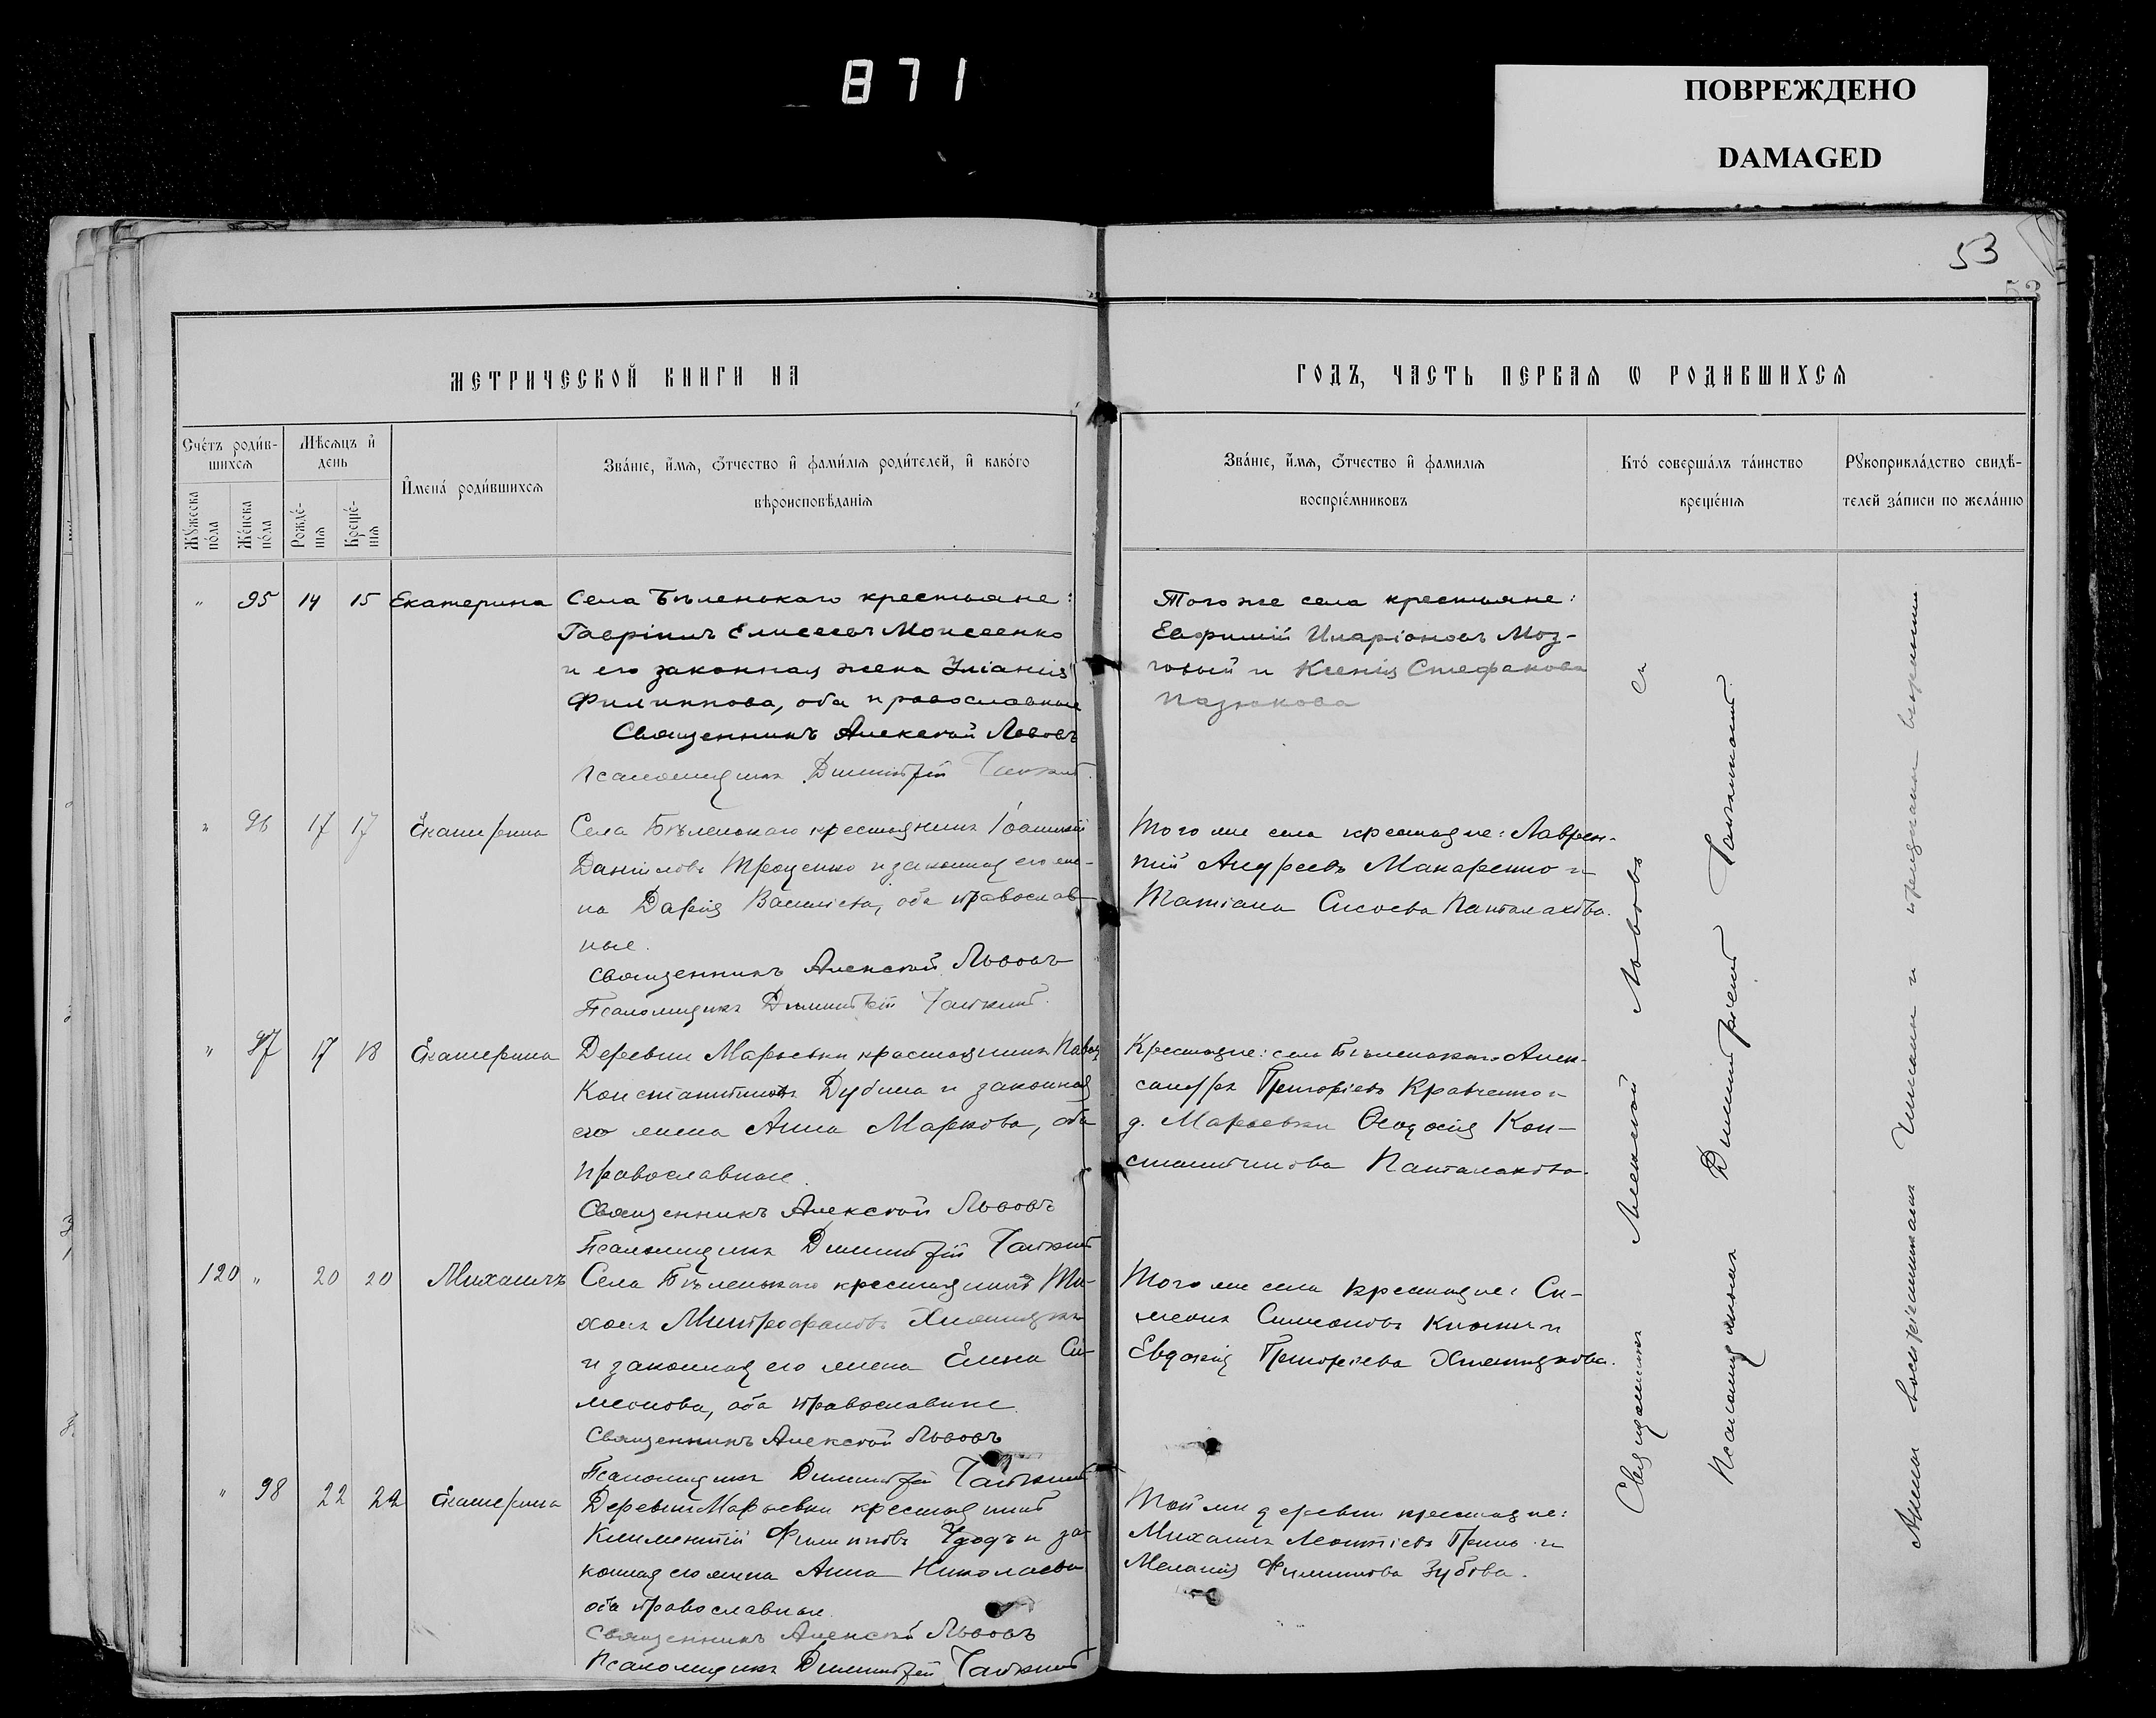 871
ПОВРЕЖДЕНО
DAMAGED
53
53
МЕТРИЧЕСКОЙ КНИГИ НА
ГОДЪ, ЧАСТЬ ПЕРВАѦ Ѡ РОДИВШИХСѦ
Счéтъ роди́в-
шихсѧ
Мѣ́сѧцъ и҆
день
И҆мена́ роди́вшихсѧ
Зва́нїе, и҆́мѧ, ѻ҆́тчество и҆ фами́лїѧ роди́телей, и҆ како́го
вѣроисповѣ́данїѧ
Мꙋ́жеска
по́ла
Же́нска
по́ла
Рожде́-
нїѧ
Креще́-
нїѧ
Зва́нїе, и҆́мѧ, ѻ҆́тчество и҆ фамилїѧ
воспрїе́мниковъ
Кто́ соверша́лъ та́инство
креще́нїѧ
Рꙋкоприкла́дство свидѣ́-
телей за́писи по жела́нїю
" 95 14 15 Екатерина
Села Бѣленькаго крестьяне:
Гавріилъ Елисеевъ Моисеенко
и его законная жена Уліанія
Филиппова, оба православные
Священникъ Алексѣй Львовъ
Псаломщикъ Димитрій
Того же села крестьяне:
Евфимій Иларіоновъ Моз-
говый и Ксенія Стефанова
Пазюкова
" 96 17 17 Екатерина
Села Бѣленькаго крестьянинъ Іоанникій
Даніиловъ Троценко и законная его же-
на Дарія Васильева, оба православ-
ные.
Священникъ Алексѣй Львовъ
Псаломщикъ Димитрій
Того же села крестьяне: Лаврен-
тій Андреевъ Макаренко и
Татіана Сисоева Панталакова.
" 97 17 18 Екатерина
Деревни Марьевки крестьянинъ Павелъ
Константиновъ Дубина и законная
его жена Анна Маркова, оба
православные.
Священникъ Алексѣй Львовъ
Псаломщикъ Димитрій
Крестьяне: села Бѣленькаго Алек-
сандръ Григоріевъ Кравченко и
д. Марьевки Ѳеодосія Кон-
стантинова Панталакова.
120 " 20 20 Михаилъ
Села Бѣленькаго крестьянинъ Ти-
хонъ Митрофановъ
и законная его жена Елена Си-
меонова, оба православные.
Священникъ Алексѣй Львовъ
Псаломщикъ Димитрій
Того же села крестьяне: Си-
меонъ Симеоновъ и
Евдокія Григорьева
" 98 22 22 Екатерина
Деревни Марьевки крестьянинъ
Климентій Филипповъ и за-
конная его жена Анна Николаева
оба православные.
Священникъ Алексѣй Львовъ
Псаломщикъ Димитрій
Той же деревни крестьяне:
Михаилъ Леонтіевъ и
Меланія Филиппова Зубова.
Священникъ Алексѣй Львовъ съ
Псаломщикомъ Димитріемъ